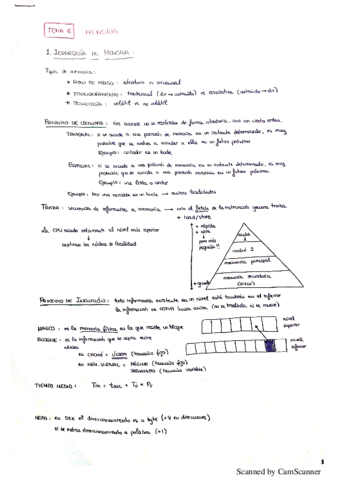 TEMA 6 MEMORIA
1. JERARQUÍA DE MEMORIA:
Tipos de memoria:
* MODO DE ACCESO: aleatorio vs secuencial
* FUNCIONAMIENTO: tradicional (dir → contenido) vs asociativa (contenido → dir)
* TECNOLOGÍA: volátil vs no volátil
PRINCIPIO DE LOCALIDAD: los accesos no se realizan de forma aleatoria, sino con un cierto orden.
TEMPORAL: si se accede a una posición de memoria en un instante determinado, es muy
probable que se vuelva a acceder a ella en un futuro próximo
Ejemplo: contador en un bucle
ESPACIAL: si se accede a una posición de memoria en un instante determinado, es muy
probable que se acceda a posiciones cercanas en un futuro próximo.
Ejemplo: una lista o vector
Ejemplo: leer una variable en un bucle → ambas localidades
TRAZA: secuencia de referencias a memoria → solo el fetch de la instrucción genera traza
+ load/store
La CPU accede solamente al nivel más superior
explotar los niveles de localidad
+ rápida
+ cara
pero más pequeña!!
+ grande
nivel 2
memoria principal
memoria secundaria
(disco)
PRINCIPIO DE INCLUSIÓN: toda información existente en un nivel está también en el inferior
la información se COPIA hacia arriba (no se traslada, ni se mueve)
MARCO: es la memoria física en la que reside un bloque
BLOQUE: es la información que se copia entre
niveles
en CACHÉ = LÍNEA (tamaño fijo)
en MEM. VIRTUAL = PÁGINA (tamaño fijo)
SEGMENTO (tamaño variable)
nivel
superior
nivel
inferior
TIEMPO MEDIO:
NOTA: en DLX el direccionamiento es a byte (+4 en direcciones)
si se indica direccionamiento a palabra (+1)
Scanned by CamScanner